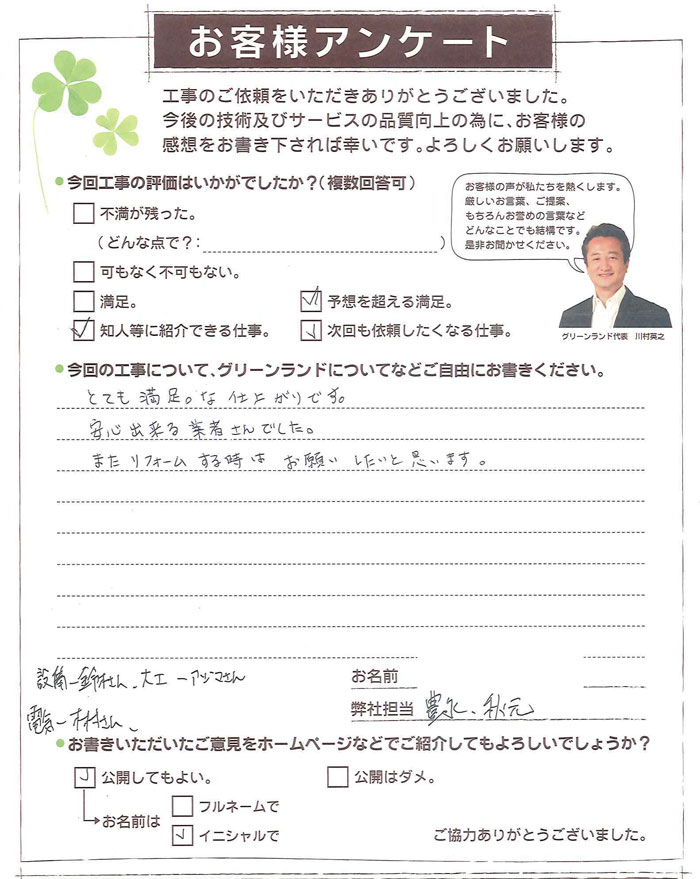 お客様アンケート
工事のご依頼をいただきありがとうございました。
今後の技術及びサービスの品質向上の為に、お客様の
感想をお書き下されば幸いです。よろしくお願いします。
今回工事の評価はいかがでしたか?(複数回答可)
不満が残った。
(どんな点で?: )
可もなく不可もない。
満足。
予想を超える満足。
知人等に紹介できる仕事。
次回も依頼したくなる仕事。
お客様の声が私たちを熱くします。
厳しいお言葉、ご提案、
もちろんお誉めの言葉など
どんなことでも結構です。
是非お聞かせください。
グリーンランド代表 川村英之
今回の工事について、グリーンランドについてなどご自由にお書きください。
とても満足。な仕上がりです。
安心出来る業者さんでした。
またリフォームする時はお願いしたいと思います。
設備ー鈴木さん、大工ーアヅマさん
電気ー木村さん、
お名前
弊社担当 豊永、秋元
お書きいただいたご意見をホームページなどでご紹介してもよろしいでしょうか?
公開してもよい。
公開はダメ。
お名前は
フルネームで
イニシャルで
ご協力ありがとうございました。